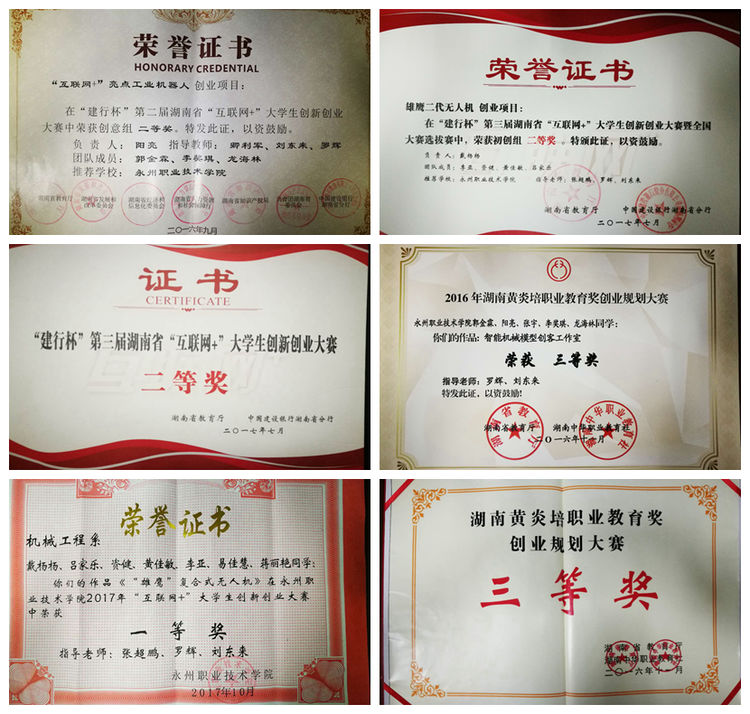 荣誉证书
HONORARY CREDENTIAL
“互联网+”亮点工业机器人 创业项目：
在“建行杯”第二届湖南省“互联网+”大学生创新创业
大赛中荣获创意组 二等奖。特发此证，以资鼓励。
负 责 人：阳亮 指导教师：卿利军、刘东来、罗辉
团队成员：郭金霖、李奕琪、龙海林
推荐学校：永州职业技术学院
二〇一六年九月
荣誉证书
雄鹰二代无人机 创业项目：
在“建行杯”第三届湖南省“互联网+”大学生创新创业大赛暨全国
大赛选拔赛中，荣获初创组 二等奖 。特颁此证，以资鼓励。
负 责 人：戴杨杨
团队成员：李亚、资健、黄佳敏、吕家乐
推荐学校：永州职业技术学院 指导老师：张超鹏、罗辉、刘东来
湖南省教育厅 中国建设银行湖南省分行
二〇一七年七月
证书
CERTIFICATE
“建行杯”第三届湖南省“互联网+”大学生创新创业大赛
二等奖
湖南省教育厅 中国建设银行湖南省分行
二〇一七年七月
2016年湖南黄炎培职业教育奖创业规划大赛
永州职业技术学院郭金霖、阳亮、张宇、李奕琪、龙海林同学：
你们的作品：智能机械模型创客工作室
荣获 三等奖
指导老师：罗辉、刘东来
特发此证，以资鼓励！
湖南省教育厅 湖南中华职业教育社
二〇一六年十一月
荣誉证书
机械工程系
戴杨杨、吕家乐、资健、黄佳敏、李亚、易佳慧、蒋丽艳同学：
你们的作品《“雄鹰”复合式无人机》在永州职
业技术学院2017年“互联网+”大学生创新创业大赛
中荣获
一等奖
指导老师：张超鹏、罗辉、刘东来
永州职业技术学院
2017年10月
湖南黄炎培职业教育奖
创业规划大赛
三等奖
湖南省教育厅
湖南中华职业教育社
二〇一六年十一月